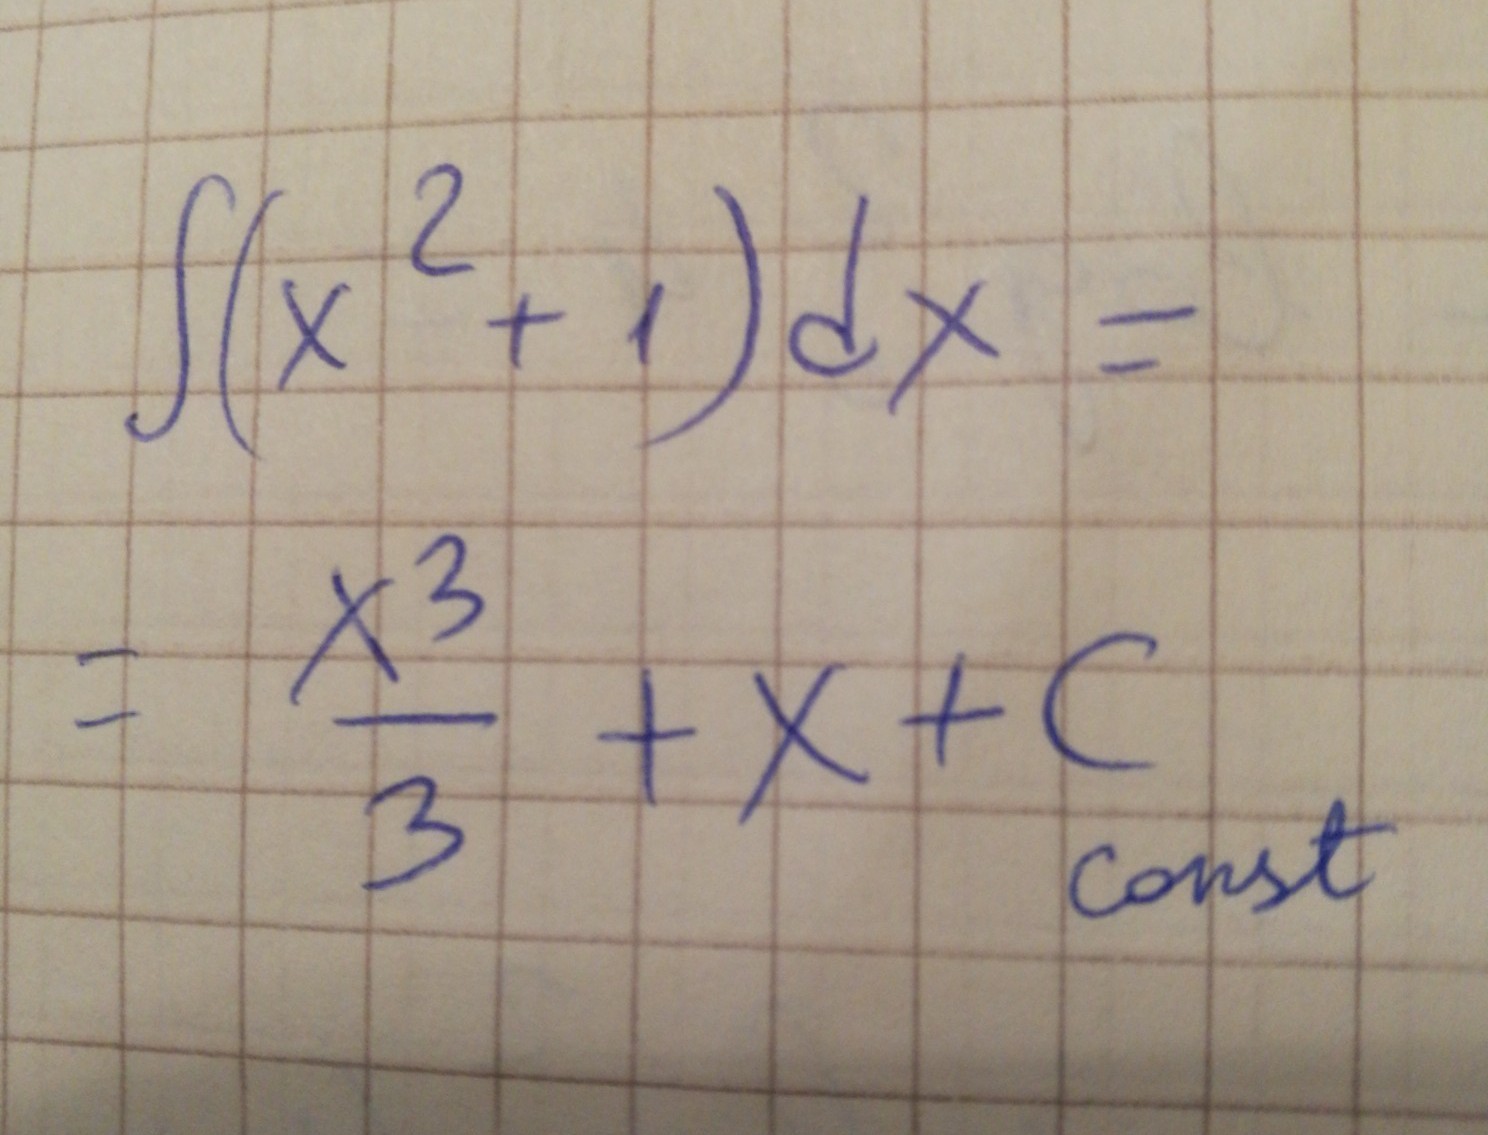 ∫(x²+1)dx=
= x³/3 +x+C
const